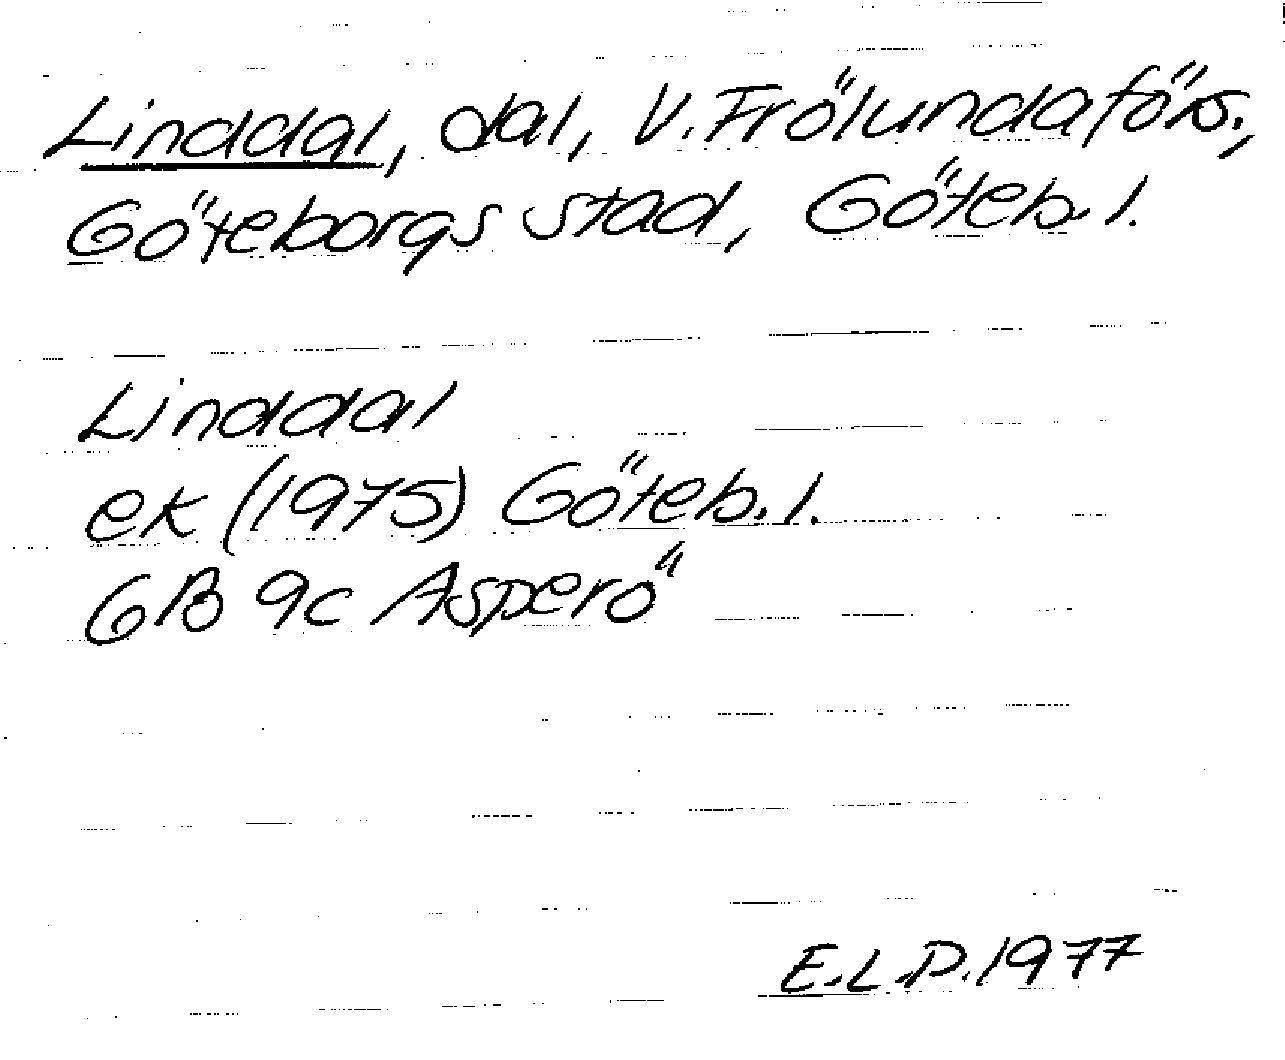 Linddal, dal, V. Frölunda förs.,
Göteborgs stad, Göteb. l.
Linddal
ek (1975) Göteb. l.
6B 9c Asperö
E.L.P. 1977